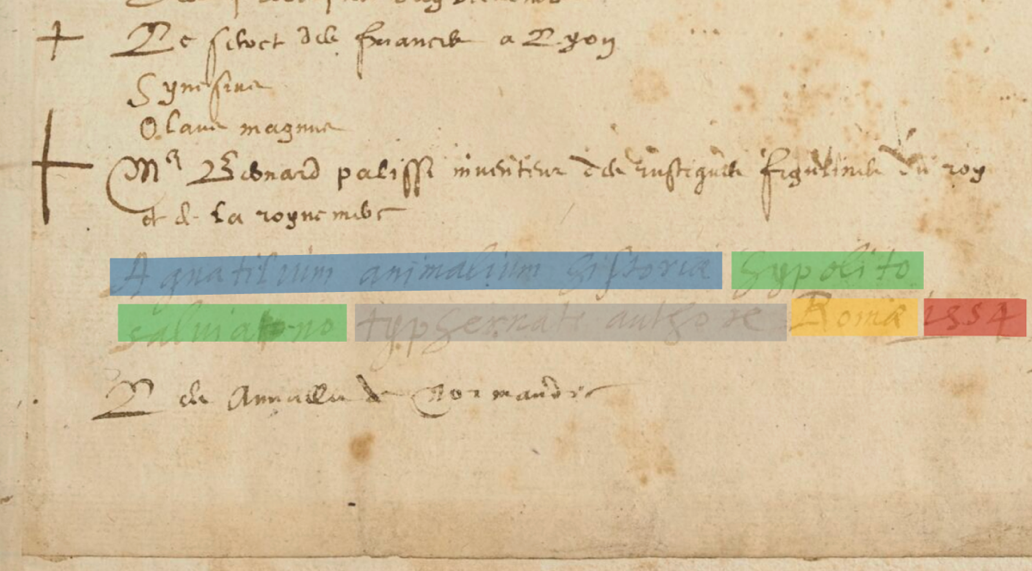 Le secret des finances a Lyon
Synesius
Olaus magnus
Mr Bernard palissi inventeur des rustiques figulines du roy
et de la royne mere
Aquatilium animalium historiæ hypolito
salviano typhernate authore Romæ 1554
Les Annales de Normandie